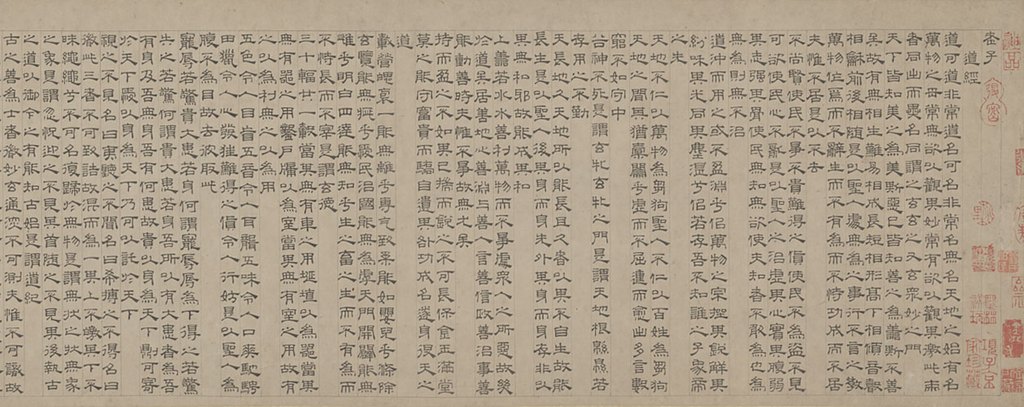 老子
道經
道可道非常道名可名非常名無名天地之始有名
萬物之母常無欲以觀其妙常有欲以觀其徼此兩
者同出而異名同謂之玄玄之又玄眾妙之門
天下皆知美之為美斯惡已皆知善之為善斯不善
矣故有無相生難易相成長短相形高下相傾音聲
相龢前後相隨是以聖人處無為之事行不言之教
萬物作焉而不辭生而不有為而不恃功成而不居
夫惟不居是以不去
不尚賢使民不爭不貴難得之貨使民不為盜不見
可欲使心不亂是以聖人之治虛其心實其腹弱
其志強其骨常使民無知無欲使夫知者不敢為也為
無為則無不治
道沖而用之或不盈淵乎似萬物之宗挫其銳解其
紛和其光同其塵湛兮似若存吾不知誰之子象帝
之先
天地不仁以萬物為芻狗聖人不仁以百姓為芻狗
天地之間其猶橐籥乎虛而不屈動而愈出多言數
窮不如守中
谷神不死是謂玄牝玄牝之門是謂天地根緜緜若
存用之不勤
天長地久天地所以能長且久者以其不自生故能
長生是以聖人後其身而身先外其身而身存非以
其無私邪故能成其私
上善若水水善利萬物而不爭處眾人之所惡故幾
於道矣居善地心善淵與善人言善信政善治事善
能動善時夫惟不爭故無尤矣
持而盈之不如其已揣而銳之不可長保金玉滿堂
莫之能守富貴而驕自遺其咎功成名遂身退天之
道
載營魄抱一能無離乎專氣致柔能如嬰兒乎滌除
玄覽能無疵乎愛民治國能無為乎天門開闔能無
雌乎明白四達能無知乎生之畜之生而不有為而
不恃長而不宰是謂玄德
三十輻共一轂當其無有車之用埏埴以為器當其
無有器之用鑿戶牖以為室當其無有室之用故有
之以為利無之以為用
五色令人目盲五音令人耳聾五味令人口爽馳騁
田獵令人心發狂難得之貨令人行妨是以聖人為
腹不為目故去彼取此
寵辱若驚貴大患若身何謂寵辱辱為下得之若驚
失之若驚何謂貴大患若身吾所以有大患者為吾
有身及吾無身吾有何患故貴以身為天下則可寄
於天下愛以身為天下乃可以託於天下
視之不見名曰夷聽之不聞名曰希搏之不得名曰
微此三者不可致詰故混而為一其上不皦其下不
昧繩繩兮不可名復歸於無物是謂無狀之狀無象
之象是謂忽怳迎之不見其首隨之不見其後執古
之道以御今之有能知古始是謂道紀
古之善為士者微妙玄通深不可識夫惟不可識故